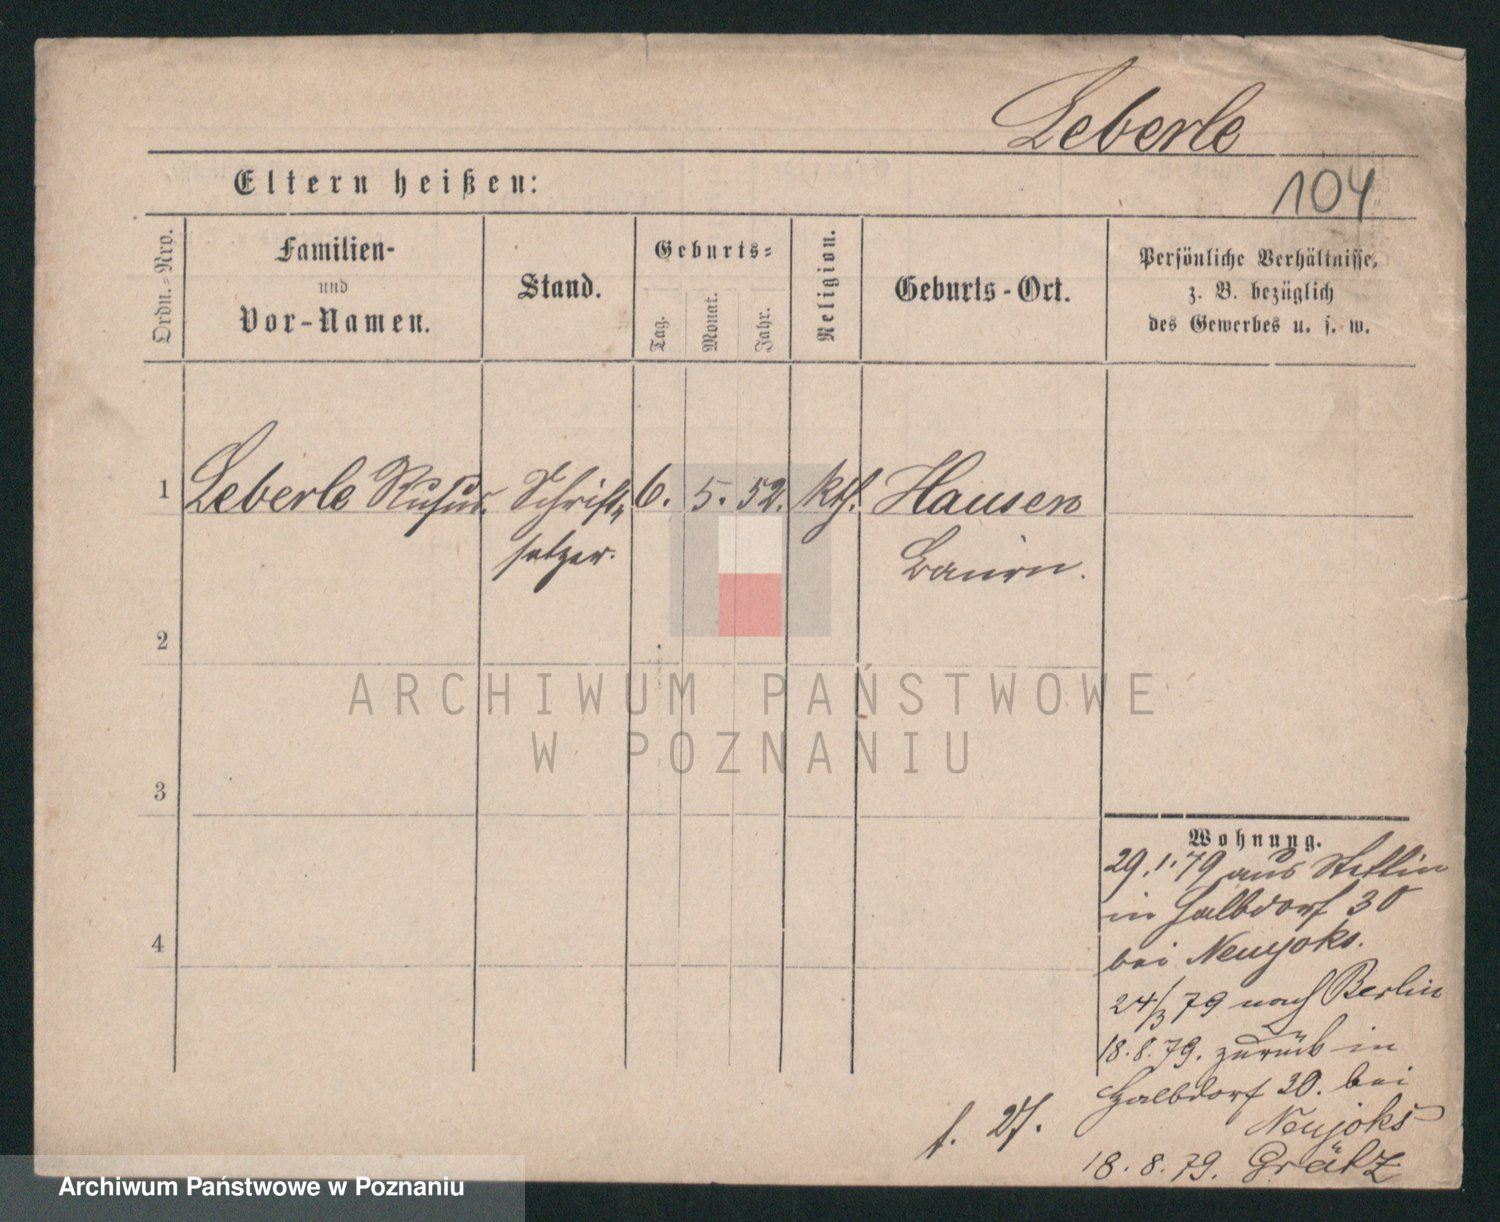 Leberle
104
Eltern heißen:
Ordn.-Nro.
Familien-
und
Vor-Namen.
Stand.
Geburts-
Tag.
Monat.
Jahr.
Religion.
Geburts-Ort.
Persönliche Verhältnisse,
z. B. bezüglich
des Gewerbes u. s. w.
1 Leberle Rufus. Schrift- 6. 5. 52. kth. Hausen
setzer. Bairn.
2
3
4
ARCHIWUM PAŃSTWOWE
W POZNANIU
Wohnung.
29.1.79 aus Stettin
in Halbdorf 30
bei
24/3 79 nach Berlin
18.8.79. zurück in
Halbdorf 30. bei
18.8.79. Grätz
f. 27.
Archiwum Państwowe w Poznaniu